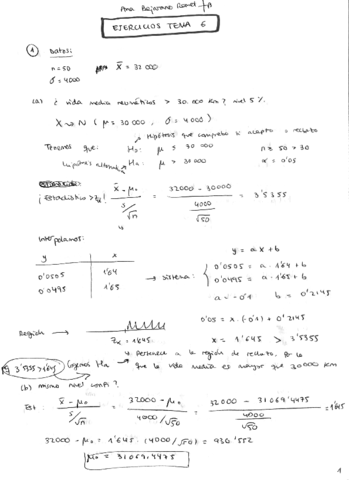 Ana Bejarano
EJERCICIOS TEMA 6
① Datos:
n = 50    x̄ = 32000
σ = 4000
(a) ¿ vida media neumáticos > 30.000 km? nivel 5 %.
X ~ N ( μ = 30000 , σ = 4000 )
Hipótesis que compruebo si acepto o rechazo
Tenemos que: H₀: μ ≤ 30000    n = 50 > 30
Hipótesis alternativa Hₐ: μ > 30000    α = 0'05
¡ Estadístico > Zα! (x̄ - μ₀)/(s/√n) = (32000 - 30000)/(4000/√50) = 3'5355
Interpolamos:    y = a x + b
y | x
0'0505 | 1'64
0'0495 | 1'65
→ Sistema: { 0'0505 = a · 1'64 + b
0'0495 = a · 1'65 + b
a = -0'1    b = 0'2145
0'05 = x · (-0'1) + 0'2145
Región →    Zα = 1'645    x = 1'645 > 3'5355
3'5355 > 1'645    Cogemos Hₐ    Pertenece a la región de rechazo. Por lo
que la vida media es mayor que 30000 km
(b) mismo nivel confi?
Est: (x̄ - μ₀)/(s/√n) = (32000 - μ₀)/(4000/√50) = (32000 - 31069'4475)/(4000/√50) = 1'645
32000 - μ₀ = 1'645 · (4000/√50) = 930'552
μ₀ = 31069,4475
1